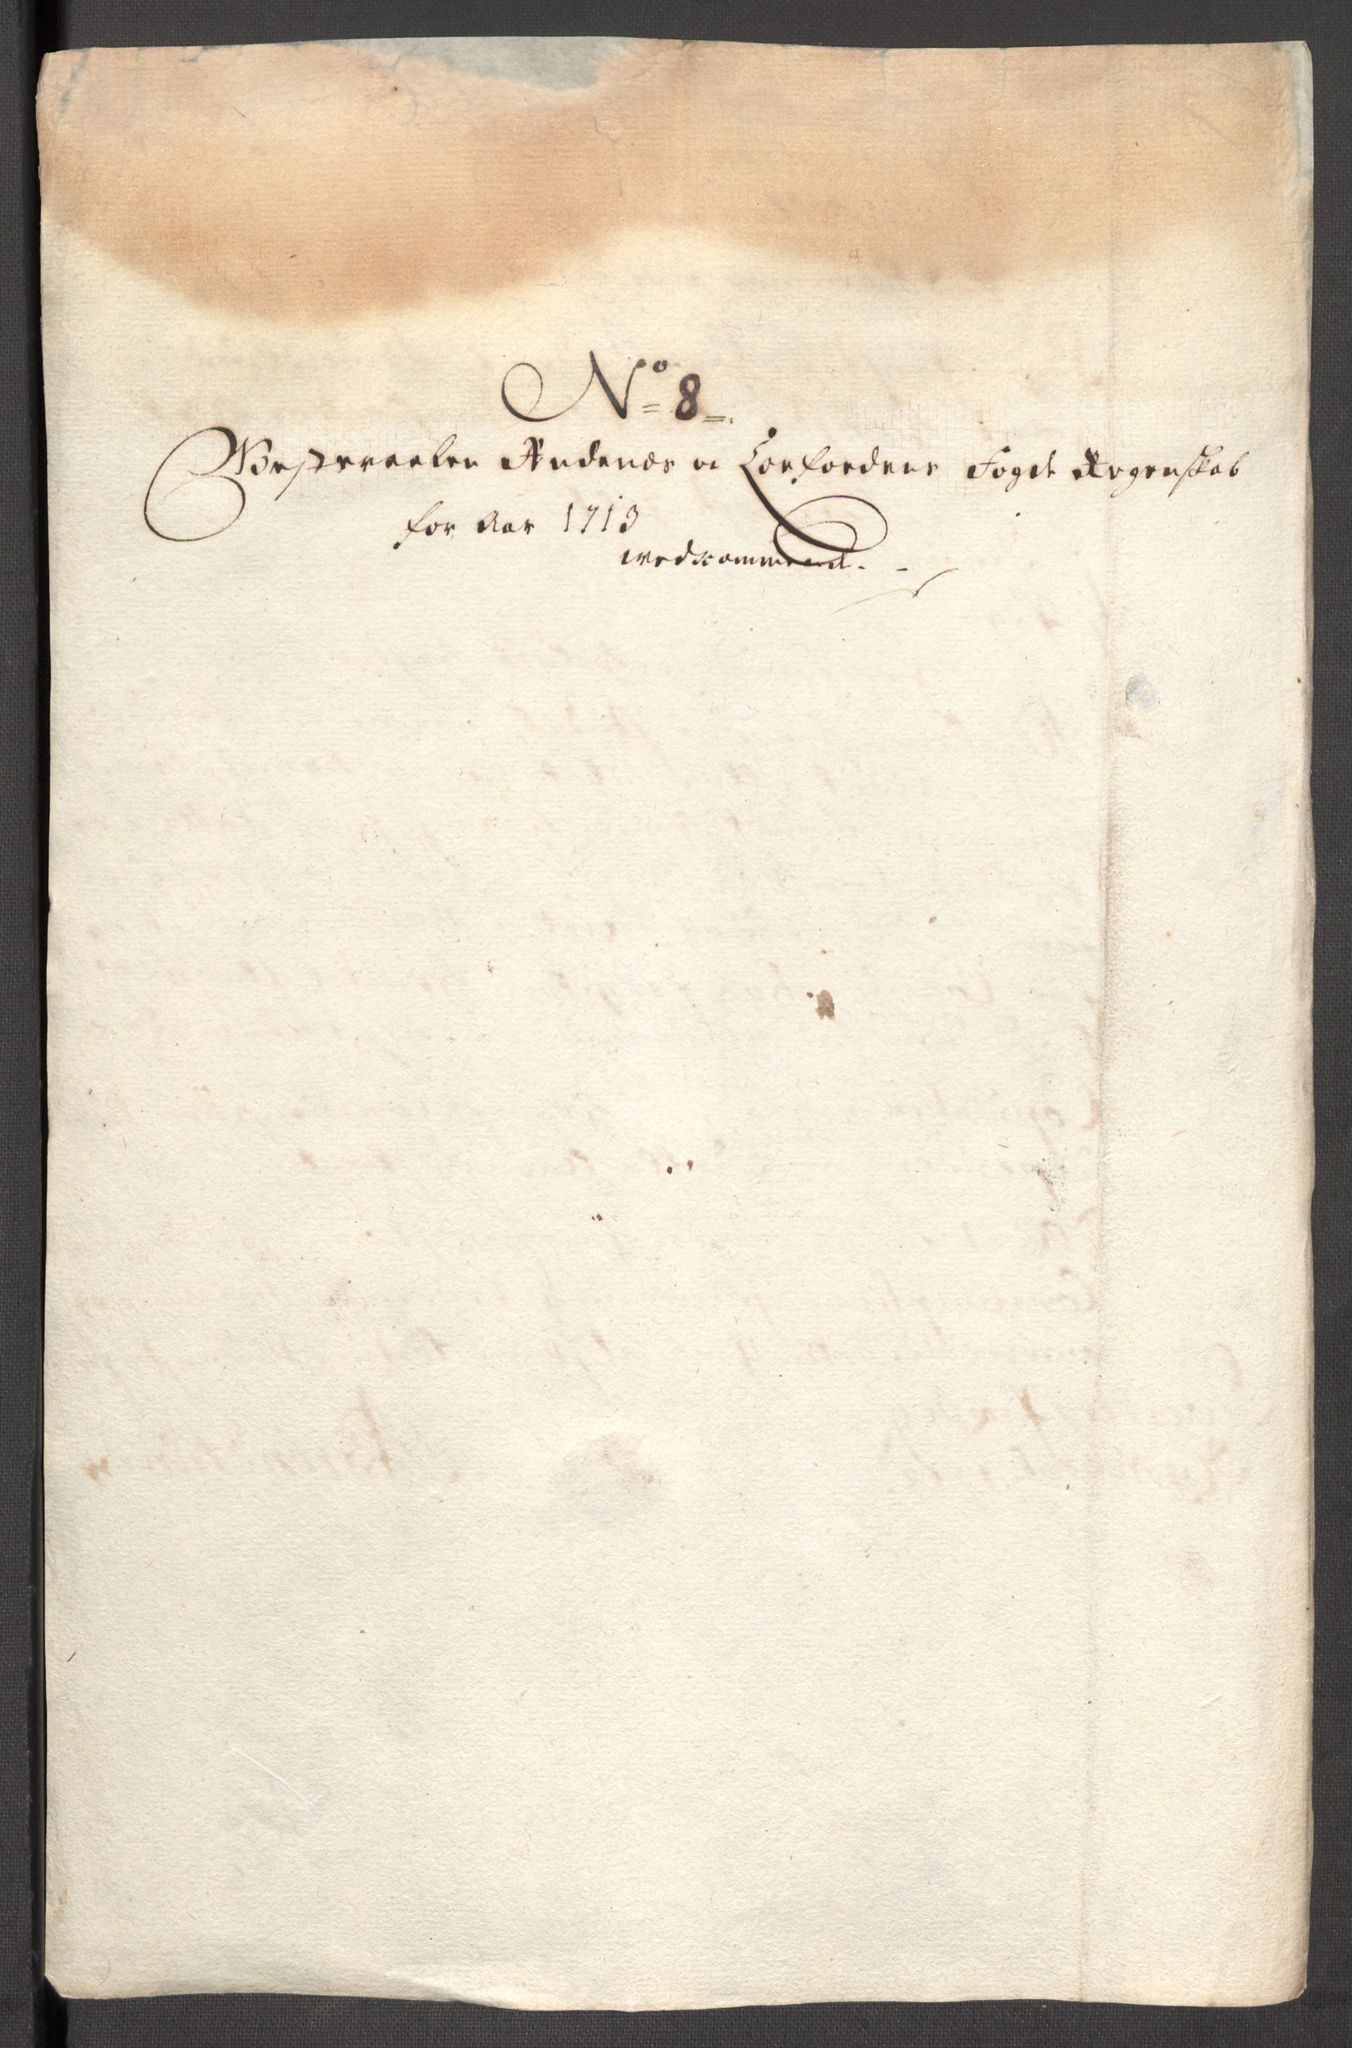 No 8
Westeraalen Andenæs oc Loefoedens Fogt Regenskab
for Aar 1713
wedkommend.